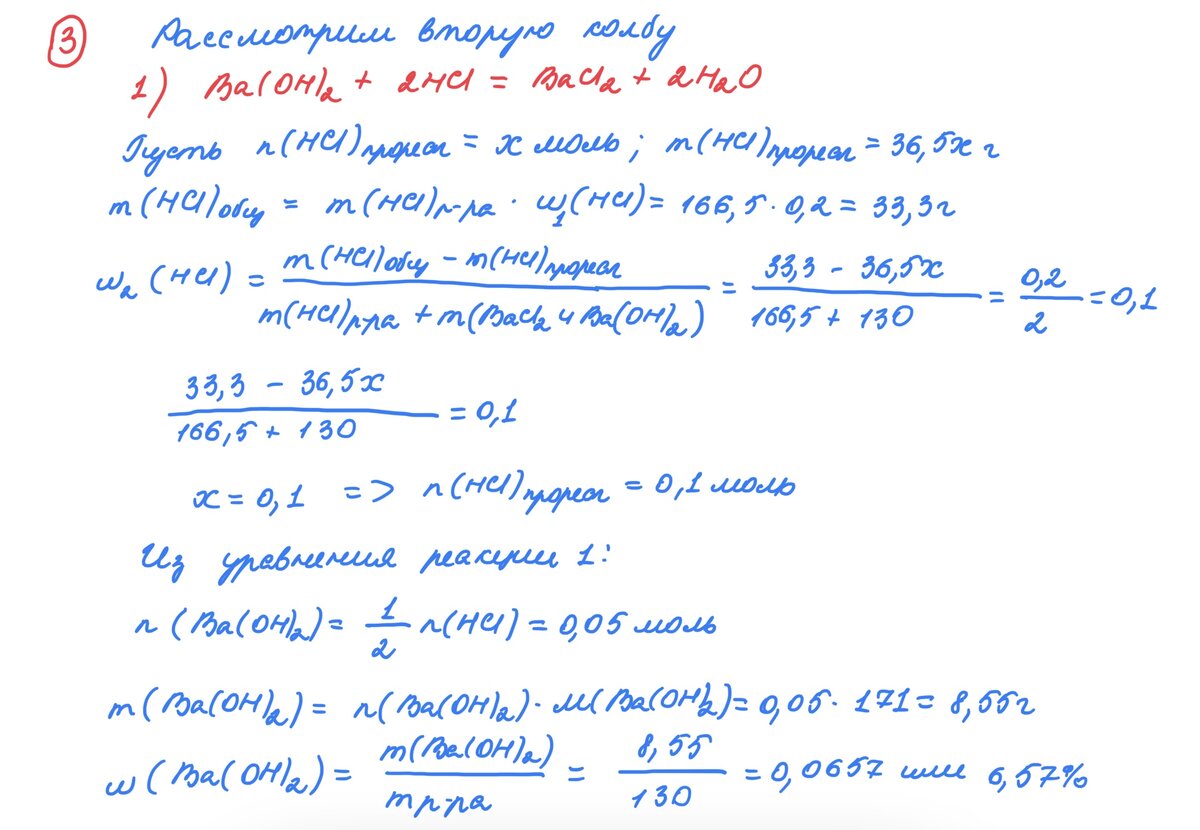 3 Рассмотрим вторую колбу
1) Ba(OH)₂ + 2HCl = BaCl₂ + 2H₂O
Пусть n(HCl)прореаг = x моль; m(HCl)прореаг = 36,5x г
m(HCl)общ = m(HCl)р-ра · w₁(HCl) = 166,5 · 0,2 = 33,3г
w₂(HCl) = (m(HCl)общ − m(HCl)прореаг) / (m(HCl)р-ра + m(BaCl₂ и Ba(OH)₂)) = (33,3 − 36,5x) / (166,5 + 130) = 0,2 / 2 = 0,1
(33,3 − 36,5x) / (166,5 + 130) = 0,1
x = 0,1 => n(HCl)прореаг = 0,1 моль
Из уравнения реакции 1:
n(Ba(OH)₂) = 1/2 n(HCl) = 0,05 моль
m(Ba(OH)₂) = n(Ba(OH)₂) · M(Ba(OH)₂) = 0,05 · 171 = 8,55г
w(Ba(OH)₂) = m(Ba(OH)₂) / mр-ра = 8,55 / 130 = 0,0657 или 6,57%